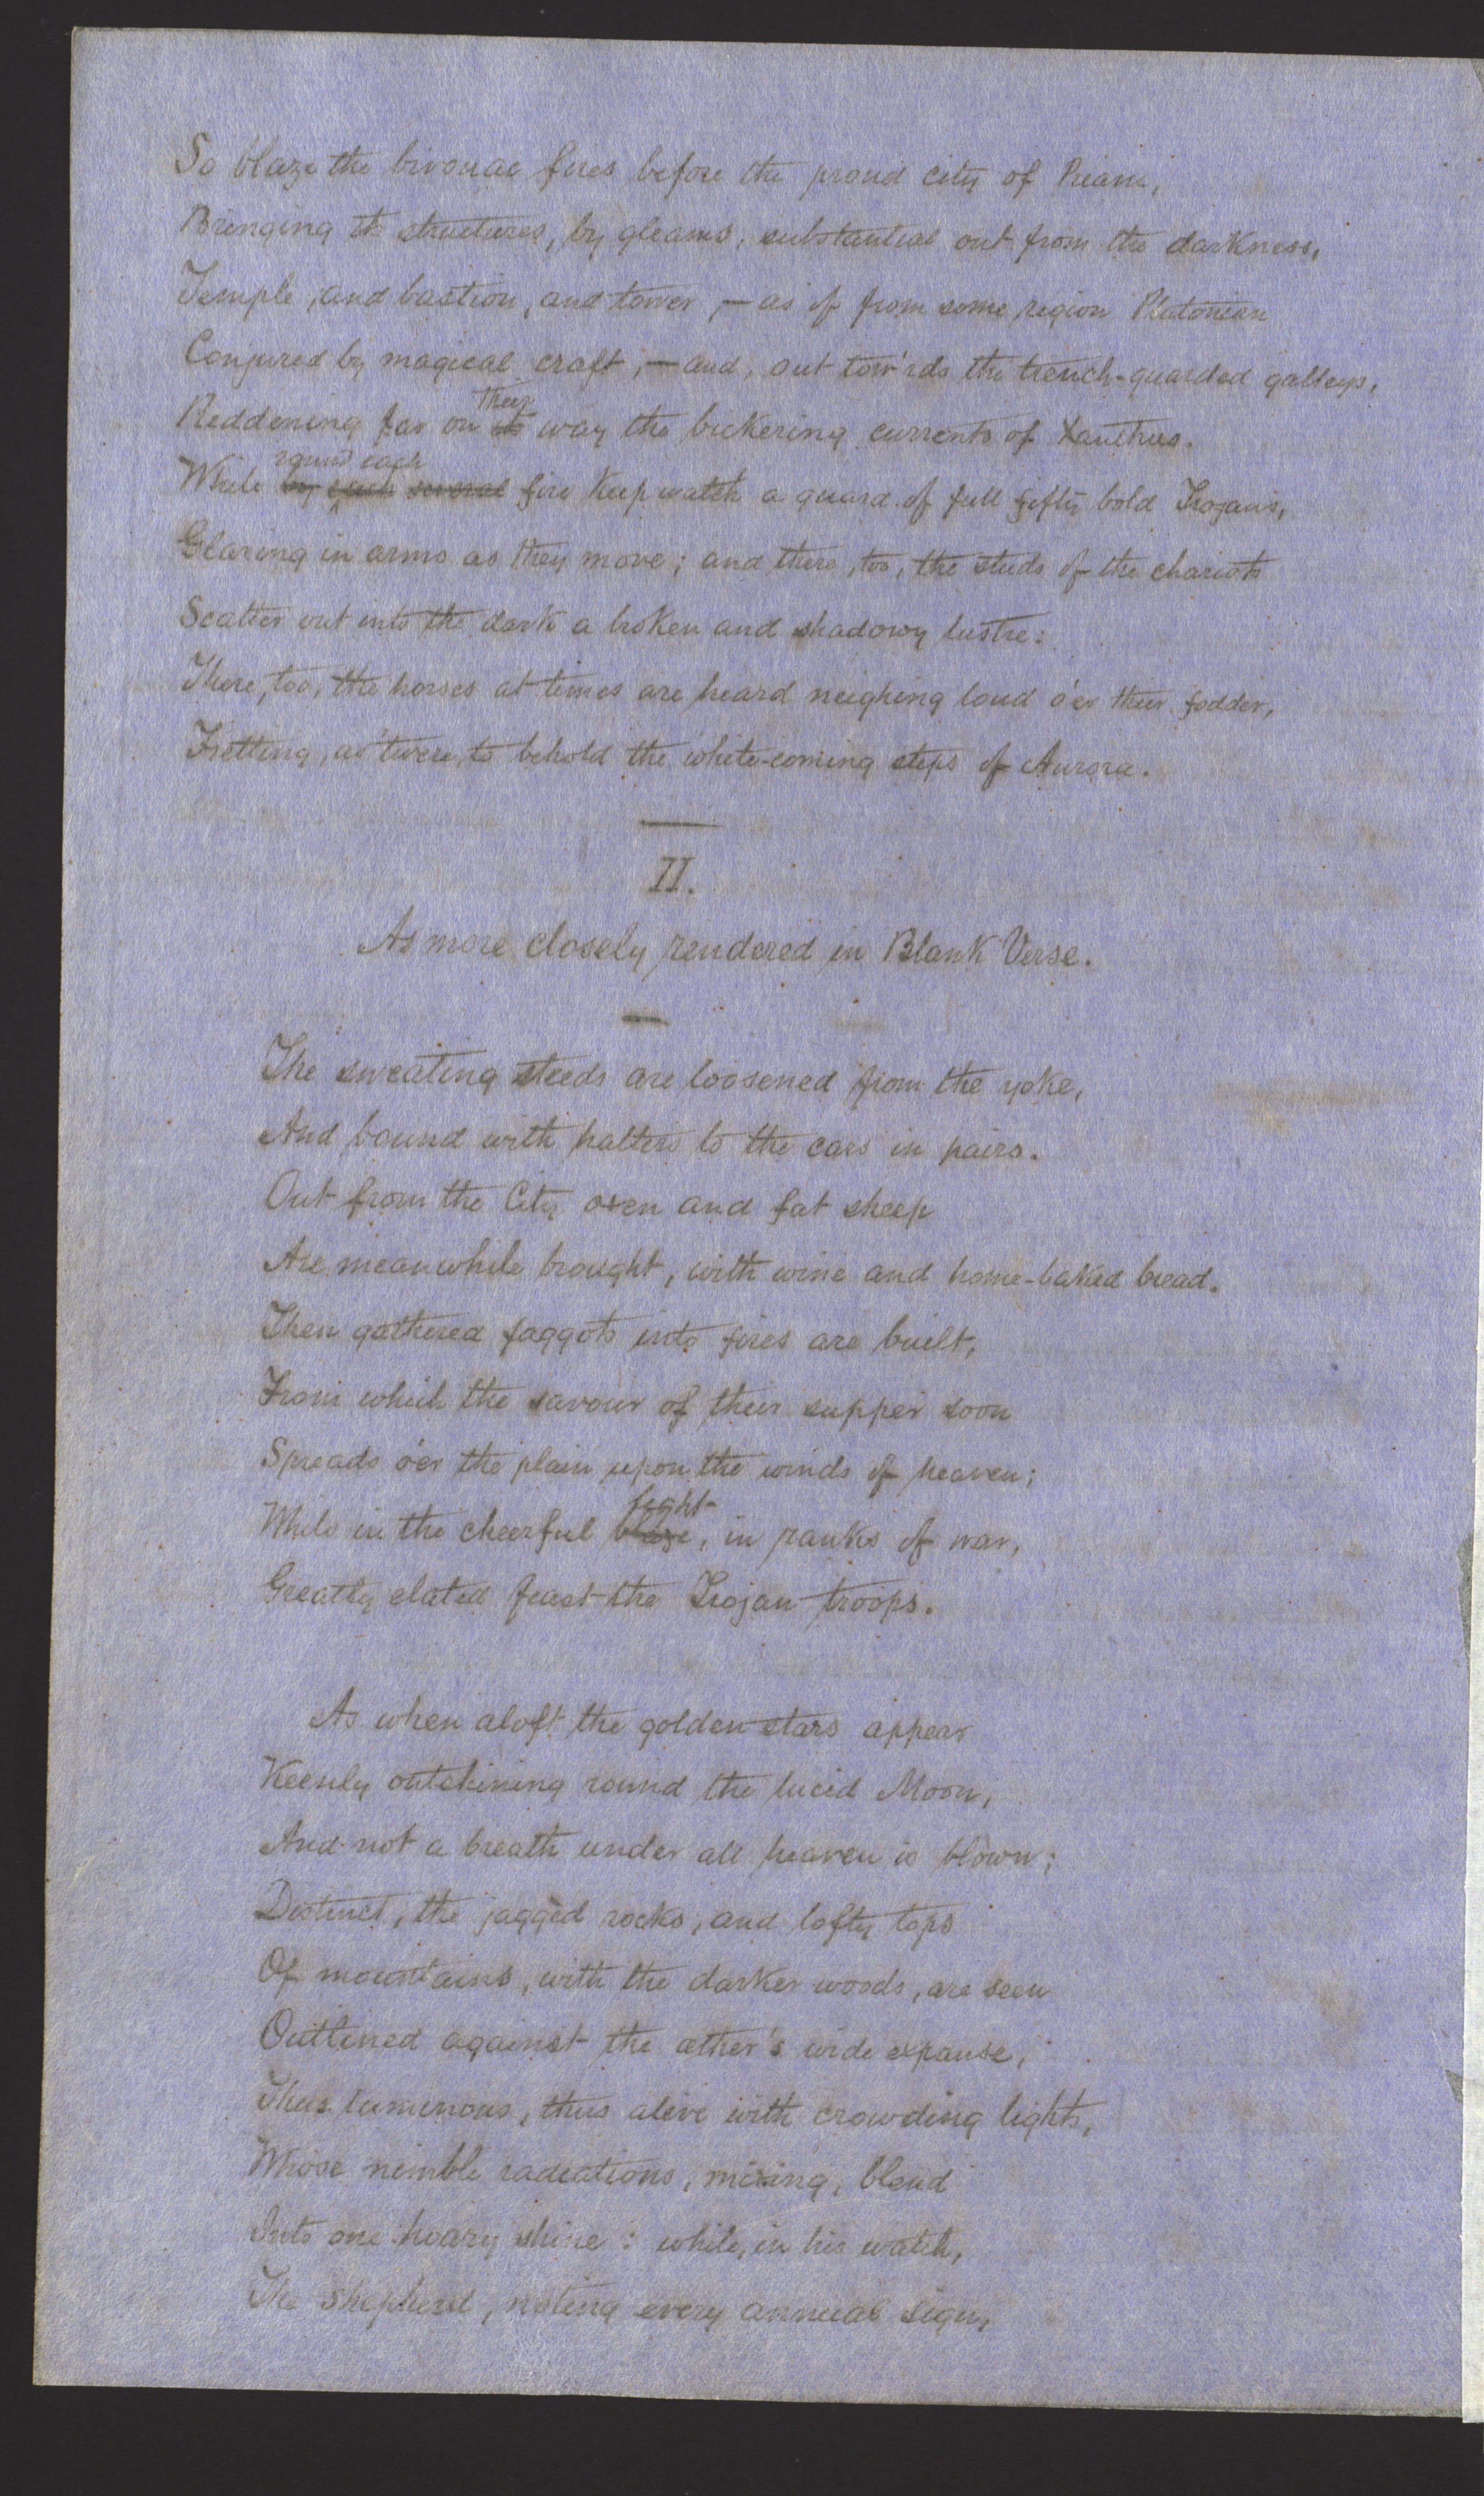 So blaze the bivouac fires before the proud city of Priam,
Bringing its structures, by gleams, substantial out from the darkness,
Temple, and bastion, and tower,—as if from some region Plutonian
Conjured by magical craft,—and, out tow'rds the trench-guarded galleys,
Reddening far on its their way the bickering currents of Xanthus.
While by each several round each fire keep watch a guard of full fifty bold Trojans,
Glaring in arms as they move; and there, too, the studs of the chariots
Scatter out into the dark a broken and shadowy lustre:
There, too, the horses at times are heard neighing loud o'er their fodder,
Fretting, as 'twere, to behold the white-coming steps of Aurora.
II.
As more closely rendered in Blank Verse.
The sweating steeds are loosened from the yoke,
And bound with halters to the cars in pairs.
Out from the City oxen and fat sheep
Are meanwhile brought, with wine and home-baked bread.
Then gathered faggots into fires are built,
From which the savour of their supper soon
Spreads o'er the plain upon the winds of heaven;
While in the cheerful blaze light, in ranks of war,
Greatly elated feast the Trojan troops.
As when aloft the golden stars appear
Keenly outshining round the lucid Moon,
And not a breath under all heaven is blown;
Distinct, the jaggèd rocks, and lofty tops
Of mountains, with the darker woods, are seen
Outlined against the æther's wide expanse,
Thus luminous, thus alive with crowding lights,
Whose nimble radiations, mixing, blend
Into one hoary shine: while, in his watch,
The shepherd, noting every annual sign,